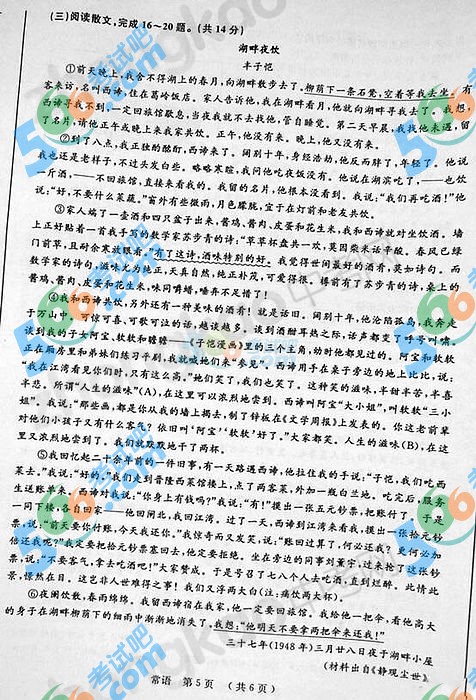 (三)阅读散文,完成16~20题。(共14分)
湖畔夜饮
丰子恺
①前天晚上,我舍不得湖上的春月,向湖畔散步去了。柳荫下一条石凳,空着等我去坐。有
客来访,名叫西谛,住在葛岭饭店。家人告诉他,我在湖畔看月,他就向湖畔寻我去了
西谛寻我不到,一定回旅馆歇息,当夜我就不去找他,管自睡觉。第二天早晨,我找他未遇,留
了名片,请他正午或晚上来我家共饮。正午,他没有来。晚上,他又没有来。
②到了八点,我正独酌酩酊,西谛来了。阔别十年,身经浩劫,他反而胖了,年轻了。他说
我也还是老样子,不过头发白些。略略寒暄,我问他吃夜饭没有。他说在湖滨吃了,——也饮
一斤酒,——不回旅馆,直接来看我的。我留的名片,他根本没看到。我说:“我们再吃酒!”他
说:“好,不要什么菜蔬。”窗外有些微雨,月色朦胧,宜于在灯前和老友共饮。
③家人端了一壶酒和四只盆子出来,酱鸡、酱肉、皮蛋和花生米,我和西谛就对坐饮酒。墙
上正好贴着一首我手写的数学家苏步青的诗:“草草杯盘共一欢,莫因柴米话辛酸。春风已绿
门前草,且耐余寒放眼看。”有了这诗,酒味特别的好。我觉得世间最好的酒肴,莫如诗句。而
数学家的诗句,滋味尤为纯正,天真自然,纯正朴茂,可爱得很。樽前有了苏步青的诗,桌上的
酱鸡、酱肉、皮蛋和花生米,味同嚼蜡,唾弃不足惜了!
④我和西谛共饮,另外还有一种美味的酒肴!就是话旧。阔别十年,他沦陷孤岛,我奔走
于万山中。可惊可喜、可歌可泣的话,越谈越多。谈到酒酣耳热之际,话声都变了呼号叫啸。
谈到我的子女阿宝、软软和瞻瞻——《子恺漫画》里的三个主角,幼时他都见过的。阿宝和软软
正在厢房里和弟妹们练习平剧,我就喊她们来“参见”。西谛用手在桌子旁边的地上比比,说:
“我在江湾看见你们时,只有这么高。”她们笑了,我们也笑了。这种笑的滋味,半甜半苦,半喜
半悲。所谓“人生的滋味”(A),在这里可以浓烈地尝到。西谛叫阿宝“大小姐”,叫软软“三小
姐”。我说:“那些画,都是你从我的墙上揭去,制了锌板在《文学周报》上发表的。你这老前辈
对他们小孩子又有什么客气?依旧叫‘阿宝’‘软软’好了。”大家都笑。人生的滋味(B),在这
里又浓烈地尝到了。我们就默默地干了两杯。
⑤我回忆起二十余年前的一件旧事,有一天路遇西谛,他拉住我的手说:“子恺,我们吃西
菜去。”我说:“好的。”我们走到晋隆西菜馆楼上,点了两客菜,外加一瓶白兰地。吃完后,服务
生送账单来。西谛对我说:“你身上有钱吗?”我说:“有!”摸出一张五元钞票,把账付了。于是
一同下楼,各自回家——他回闸北,我回江湾。过了一天,西谛到江湾来看我,摸出一张拾元钞
票,说:“前天要你付账,今天我还你。”我惊奇而又发笑,说:“账回过算了,何必还我?更何必加
倍还我呢?”我定要把拾元钞票塞回去,他定要拒绝。坐在旁边的同事刘董宇,过来抢了这张钞
票,说:“不要客气,拿去吃酒吧!”大家赞成。于是号召了七八个人去吃酒,直到烂醉。此情此
景,憬然在目。这岂非人世难得之事!我们又浮两大白(注:痛饮两大杯)。
⑥夜阑饮散,春雨绵绵。我留西谛宿在我家,他一定要回旅馆。我给他一把伞,看他高大
的身子在湖畔柳荫下的细雨中渐渐地消失了。我想:“他明天不要拿两把伞来还我!”
三十七年(1948年)三月廿八日夜于湖畔小屋
(材料出自《静观尘世》
常语 第5页 (共6页)